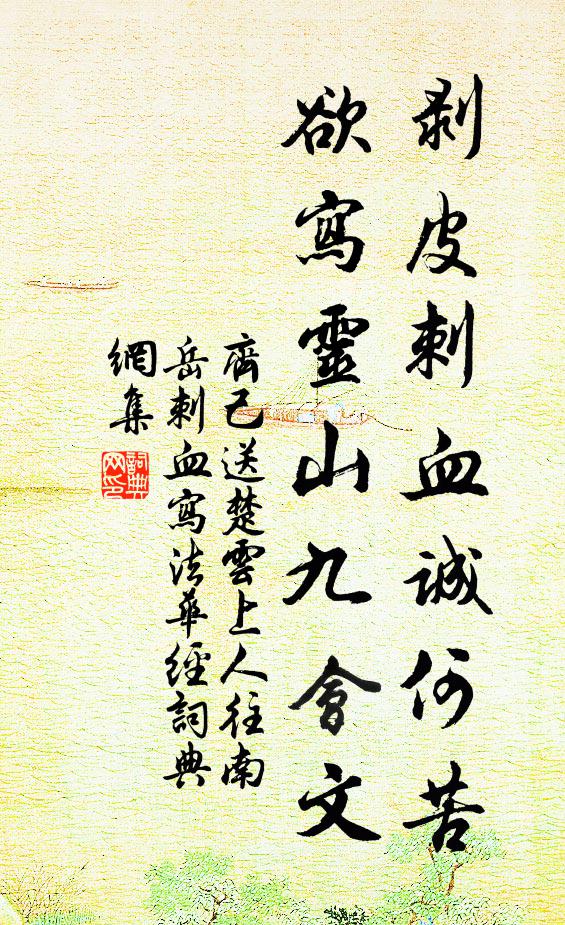 剥皮刺血誠何苦
欲寫靈山九會文
齊己送楚雲上人往南
岳刺血寫法華經詞典
網集
詞典
网印